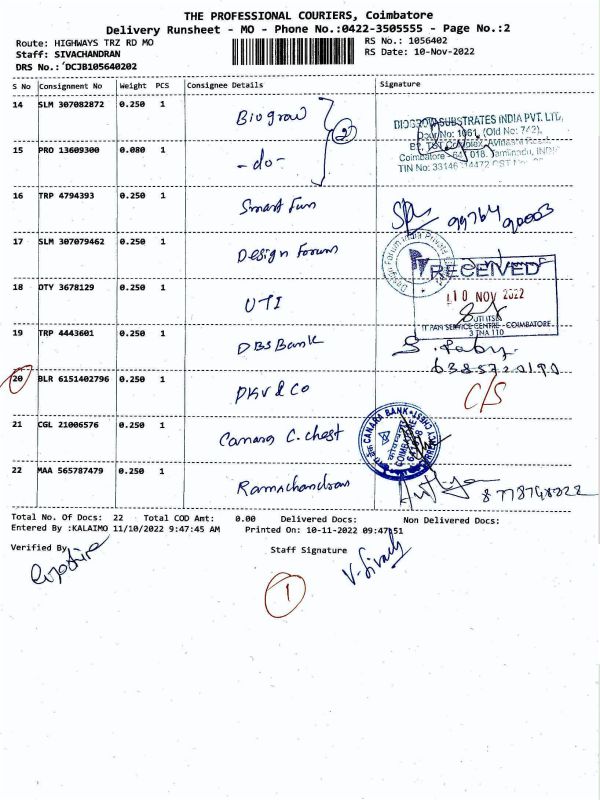 THE PROFESSIONAL COURIERS, Coimbatore
Delivery Runsheet - MO - Phone No.:0422-3505555 - Page No.:2
Route: HIGHWAYS TRZ RD MO
RS No.: 1056402
Staff: SIVACHANDRAN
RS Date: 10-Nov-2022
DRS No.: DCJB105640202
S No Consignment No Weight PCS Consignee Details Signature
14 SLM 307082872 0.250 1 Biogrow
2
BIOGROW SUBSTRATES INDIA PVT. LTD,
Door No: 1061, (Old No: 742),
Coimbatore - 641 018. Tamilnadu, INDIA
15 PRO 13609300 0.080 1 -do-
16 TRP 4794393 0.250 1 Smart Fun
17 SLM 307079462 0.250 1 Design Forum
Design Forum India Private
RECEIVED
18 DTY 3678129 0.250 1 UTI
10 NOV 2022
UTIITSL
IT PAN SERVICE CENTRE - COIMBATORE
19 TRP 4443601 0.250 1 DBS Bank
20 BLR 6151402796 0.250 1 PKV & CO
C/S
21 CGL 21006576 0.250 1 Canara C. chest
CANARA BANK
COIMBATORE
CURRENCY CHEST
22 MAA 565787479 0.250 1 Ramachandran
8778748222
Total No. Of Docs: 22 Total COD Amt: 0.00 Delivered Docs: Non Delivered Docs:
Entered By :KALAIMO 11/10/2022 9:47:45 AM Printed On: 10-11-2022 09:47:51
Verified By
Staff Signature
V. Sivach
1